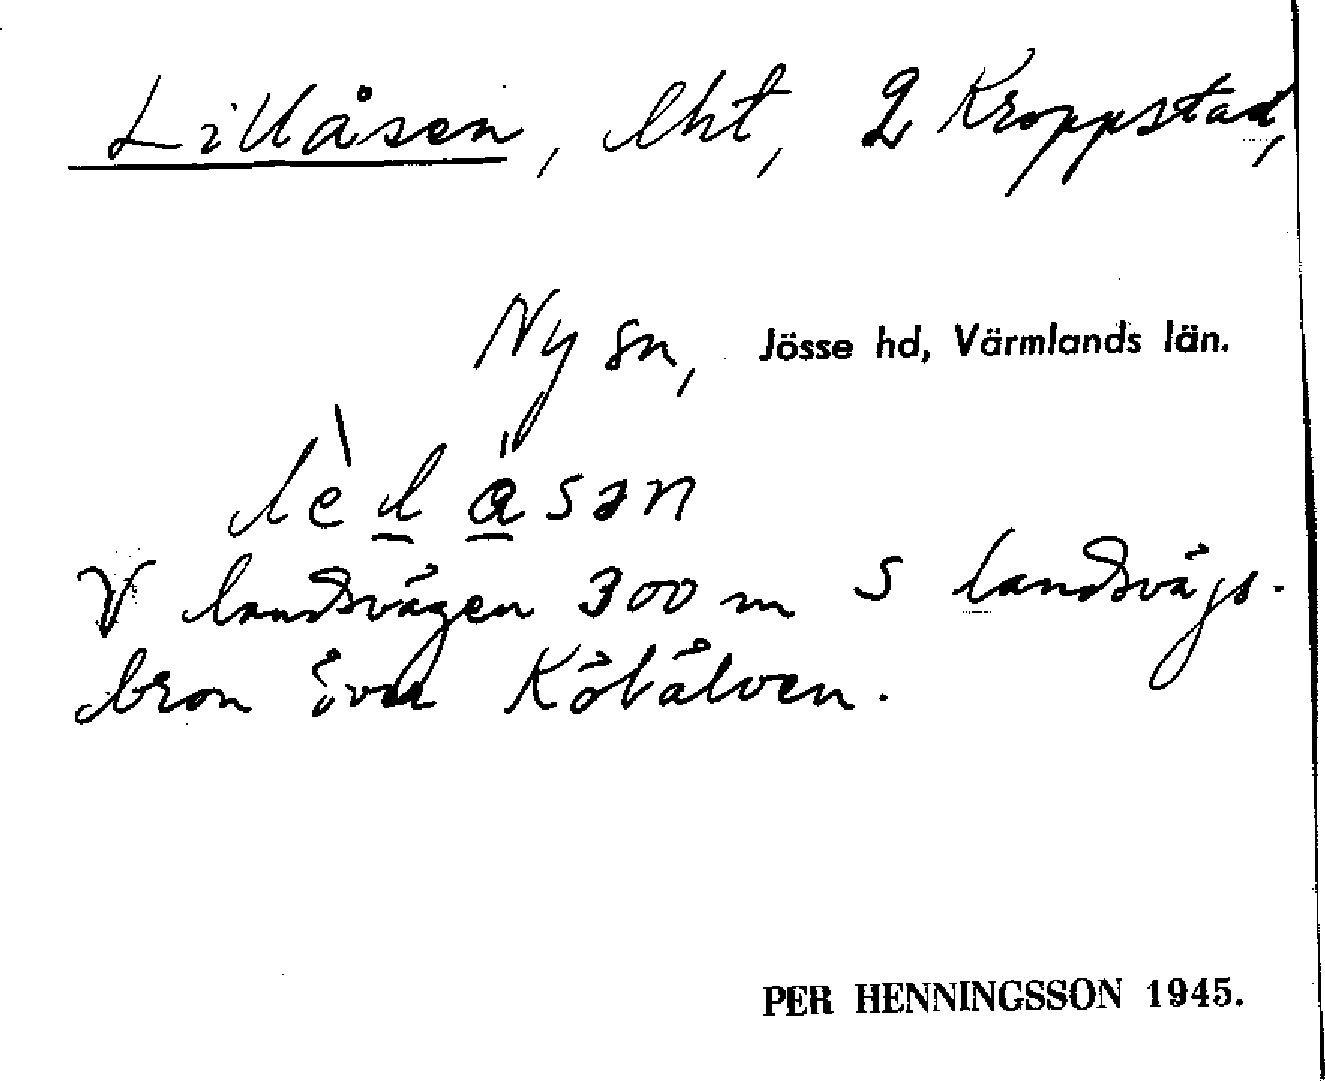 Lillåsen, lht, 2 Kroppstad,
Ny sn, Jösse hd, Värmlands län.
lèlåsən
V landsvägen 300 m S landsvägs-
bron över Kölälven.
PER HENNINGSSON 1945.